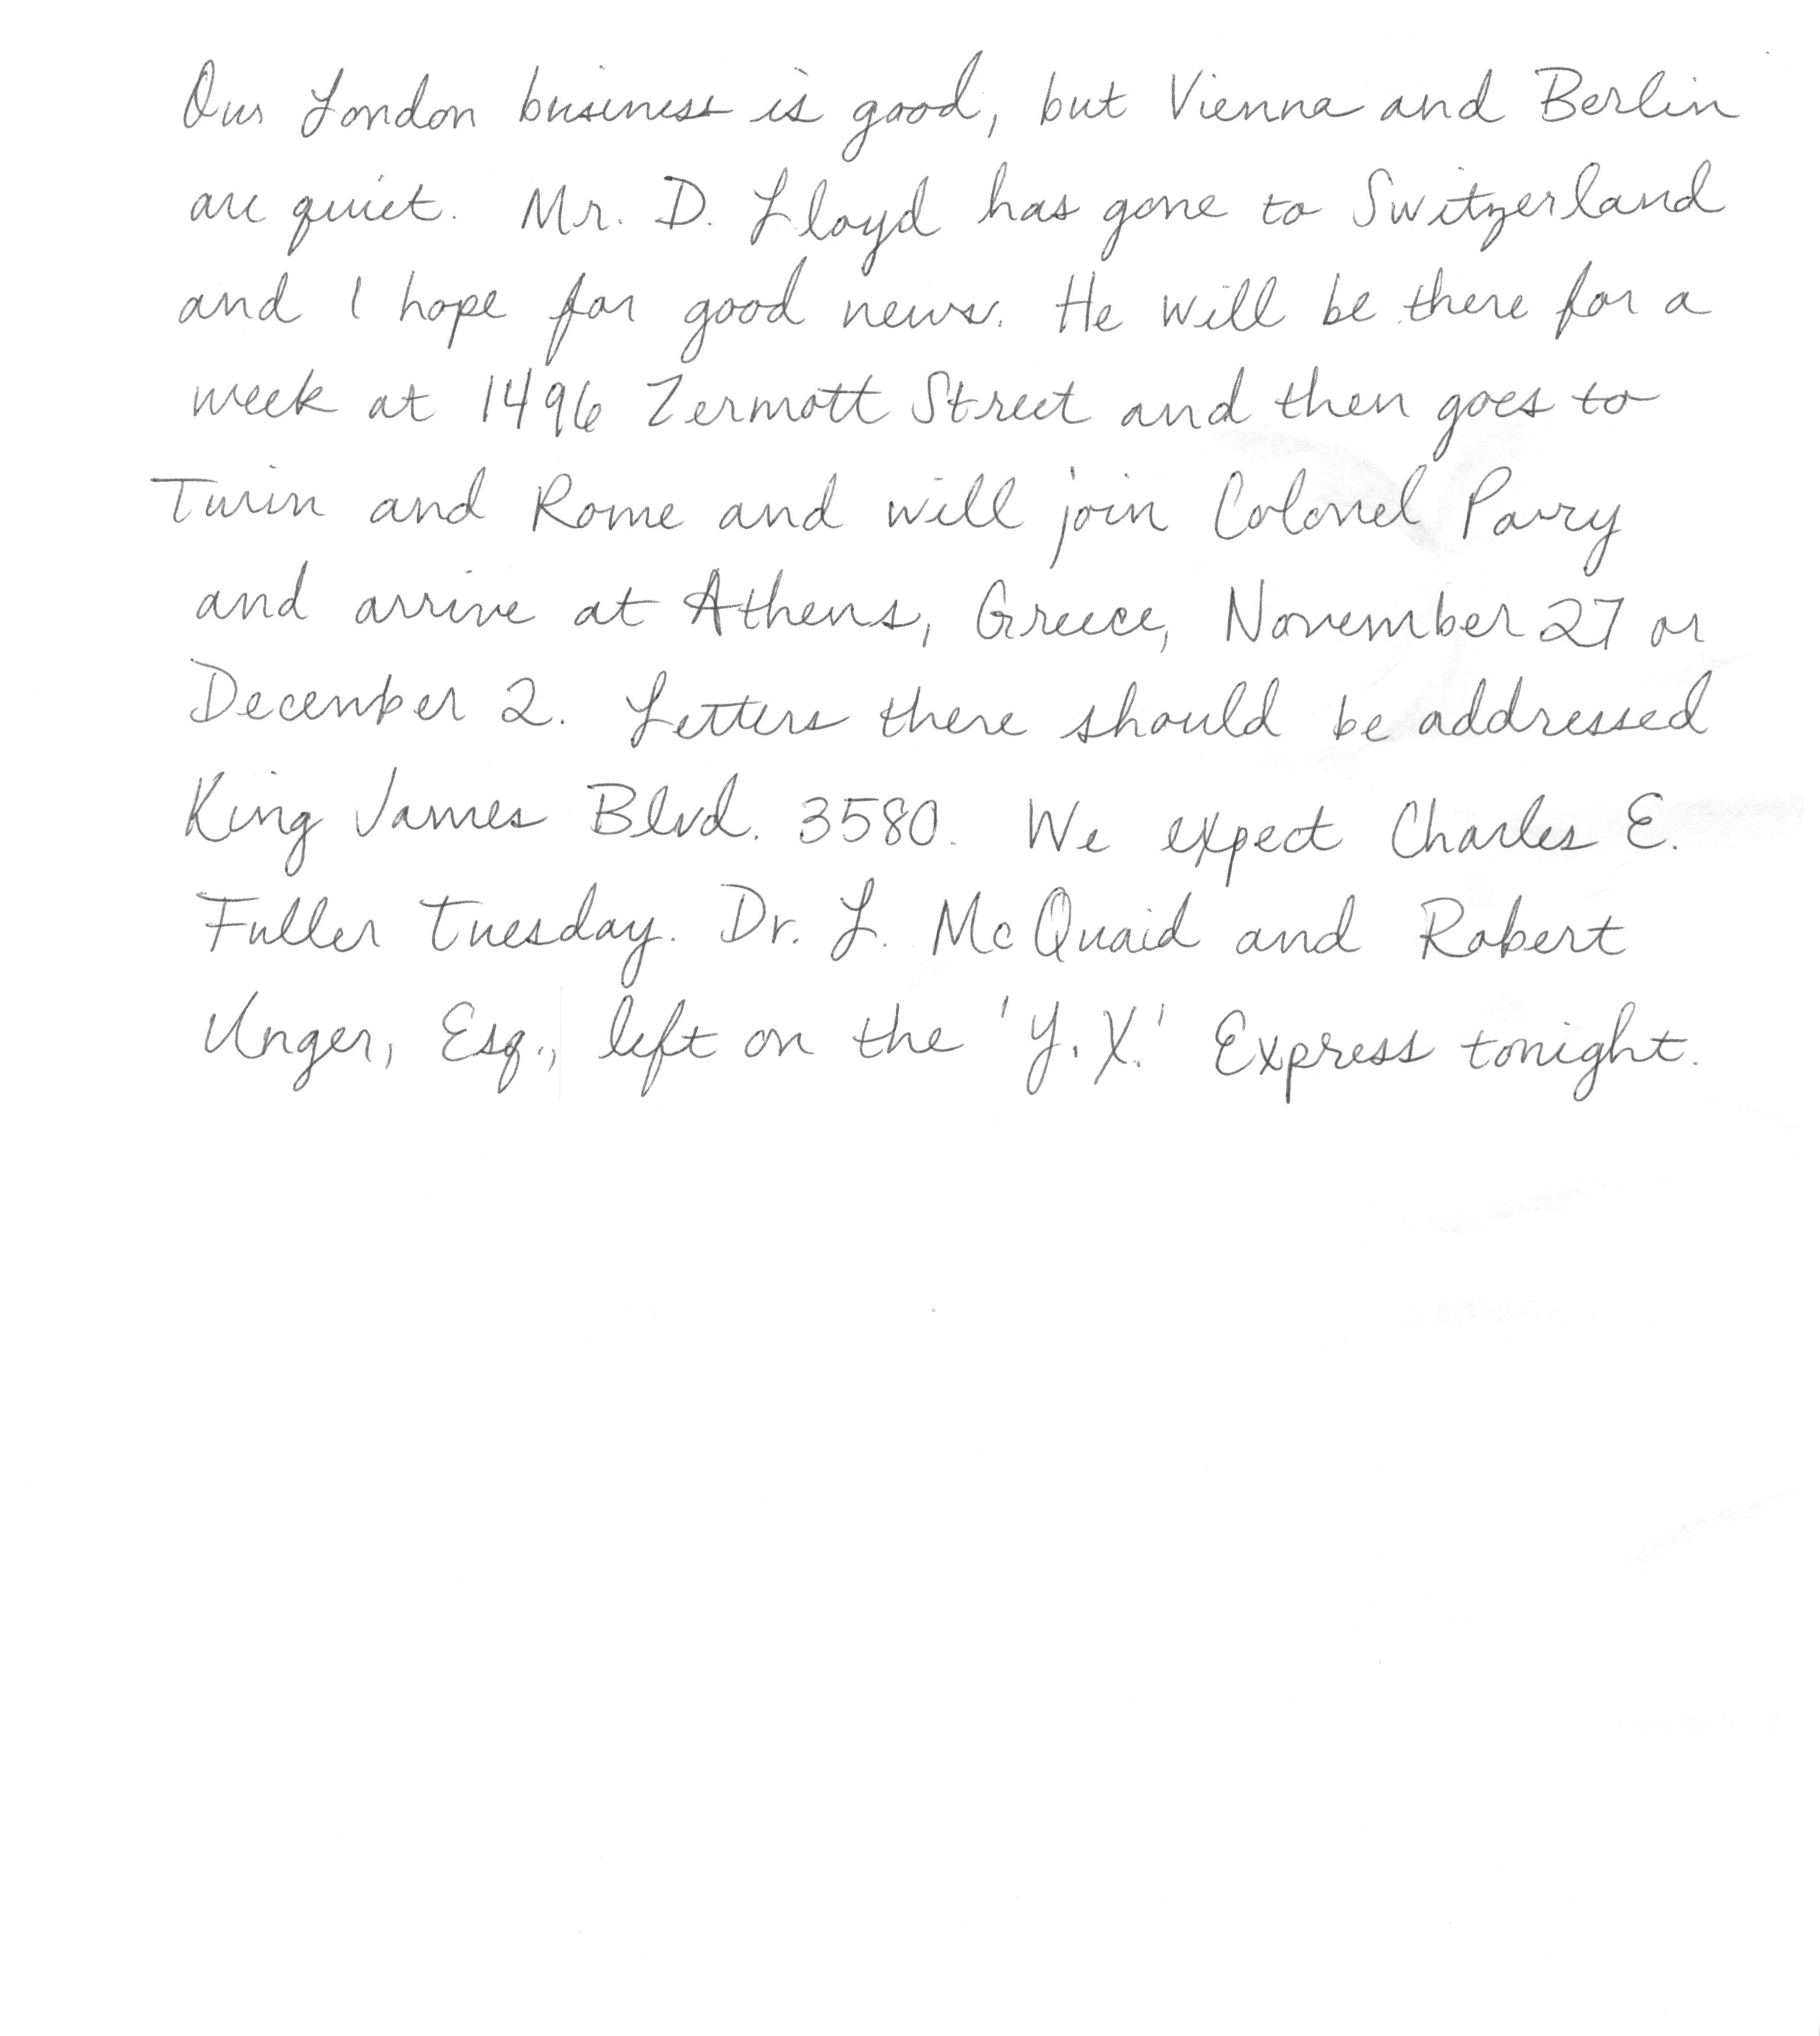 Our London business is good, but Vienna and Berlin
are quiet. Mr. D. Lloyd has gone to Switzerland
and I hope for good news. He will be there for a
week at 1496 Zermott Street and then goes to
Turin and Rome and will join Colonel Parry
and arrive at Athens, Greece, November 27 or
December 2. Letters there should be addressed
King James Blvd. 3580. We expect Charles E.
Fuller Tuesday. Dr. L. McQuaid and Robert
Unger, Esq., left on the 'Y.X.' Express tonight.